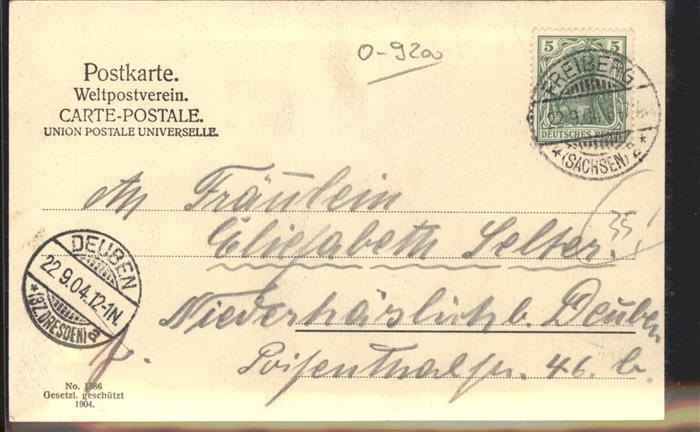 O-9200
Postkarte.
Weltpostverein.
CARTE-POSTALE.
UNION POSTALE UNIVERSELLE.
5 5
DEUTSCHES REICH
FREIBERG
22.9.04.
*(SACHSEN) 2*
An Fräulein
Elisabeth Selter.
35
DEUBEN
22.9.04.12-1N.
*(BZ.DRESDEN) a
Niederhäslich b. Deuben
Poisenthalstr. 46. b.
No. 1386
Gesetzl. geschützt
1904.